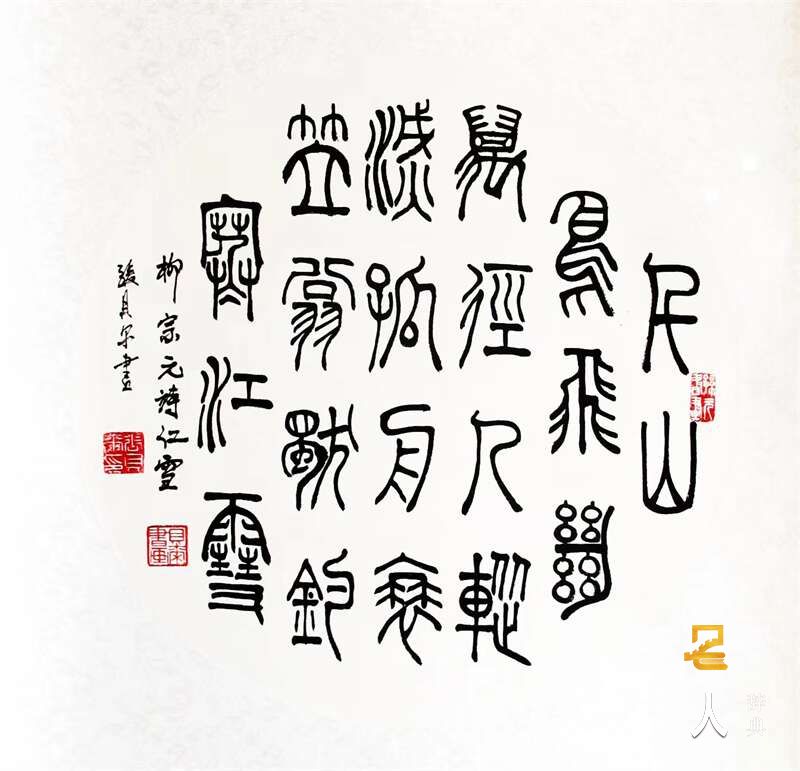 千山
鳥飛絕
萬徑人蹤
滅孤舟蓑
笠翁獨釣
寒江雪
柳宗元詩江雪
書
人
辞典